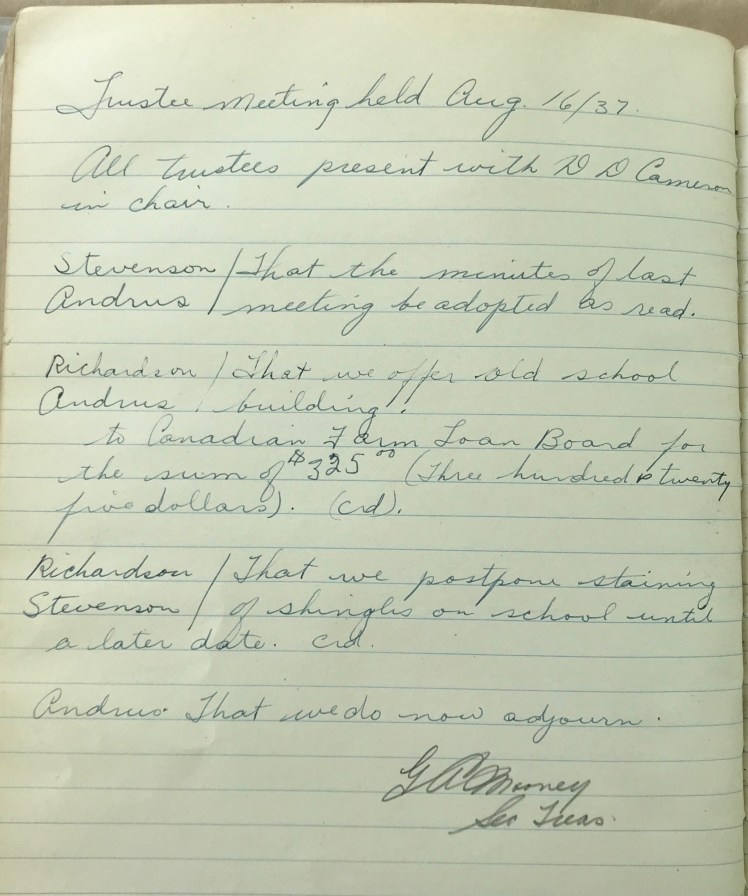 Trustee meeting held Aug. 16/37.
All trustees present with D D Cameron
in chair.
Stevenson / That the minutes of last
Andrus / meeting be adopted as read.
Richardson / That we offer old school
Andrus / building.
to Canadian Farm Loan Board for
the sum of $325.00 (Three hundred & twenty
five dollars). (crd).
Richardson / That we postpone staining
Stevenson / of shingles on school until
a later date. crd.
Andrus. That we do now adjourn.
G A Mooney
Sec Treas.